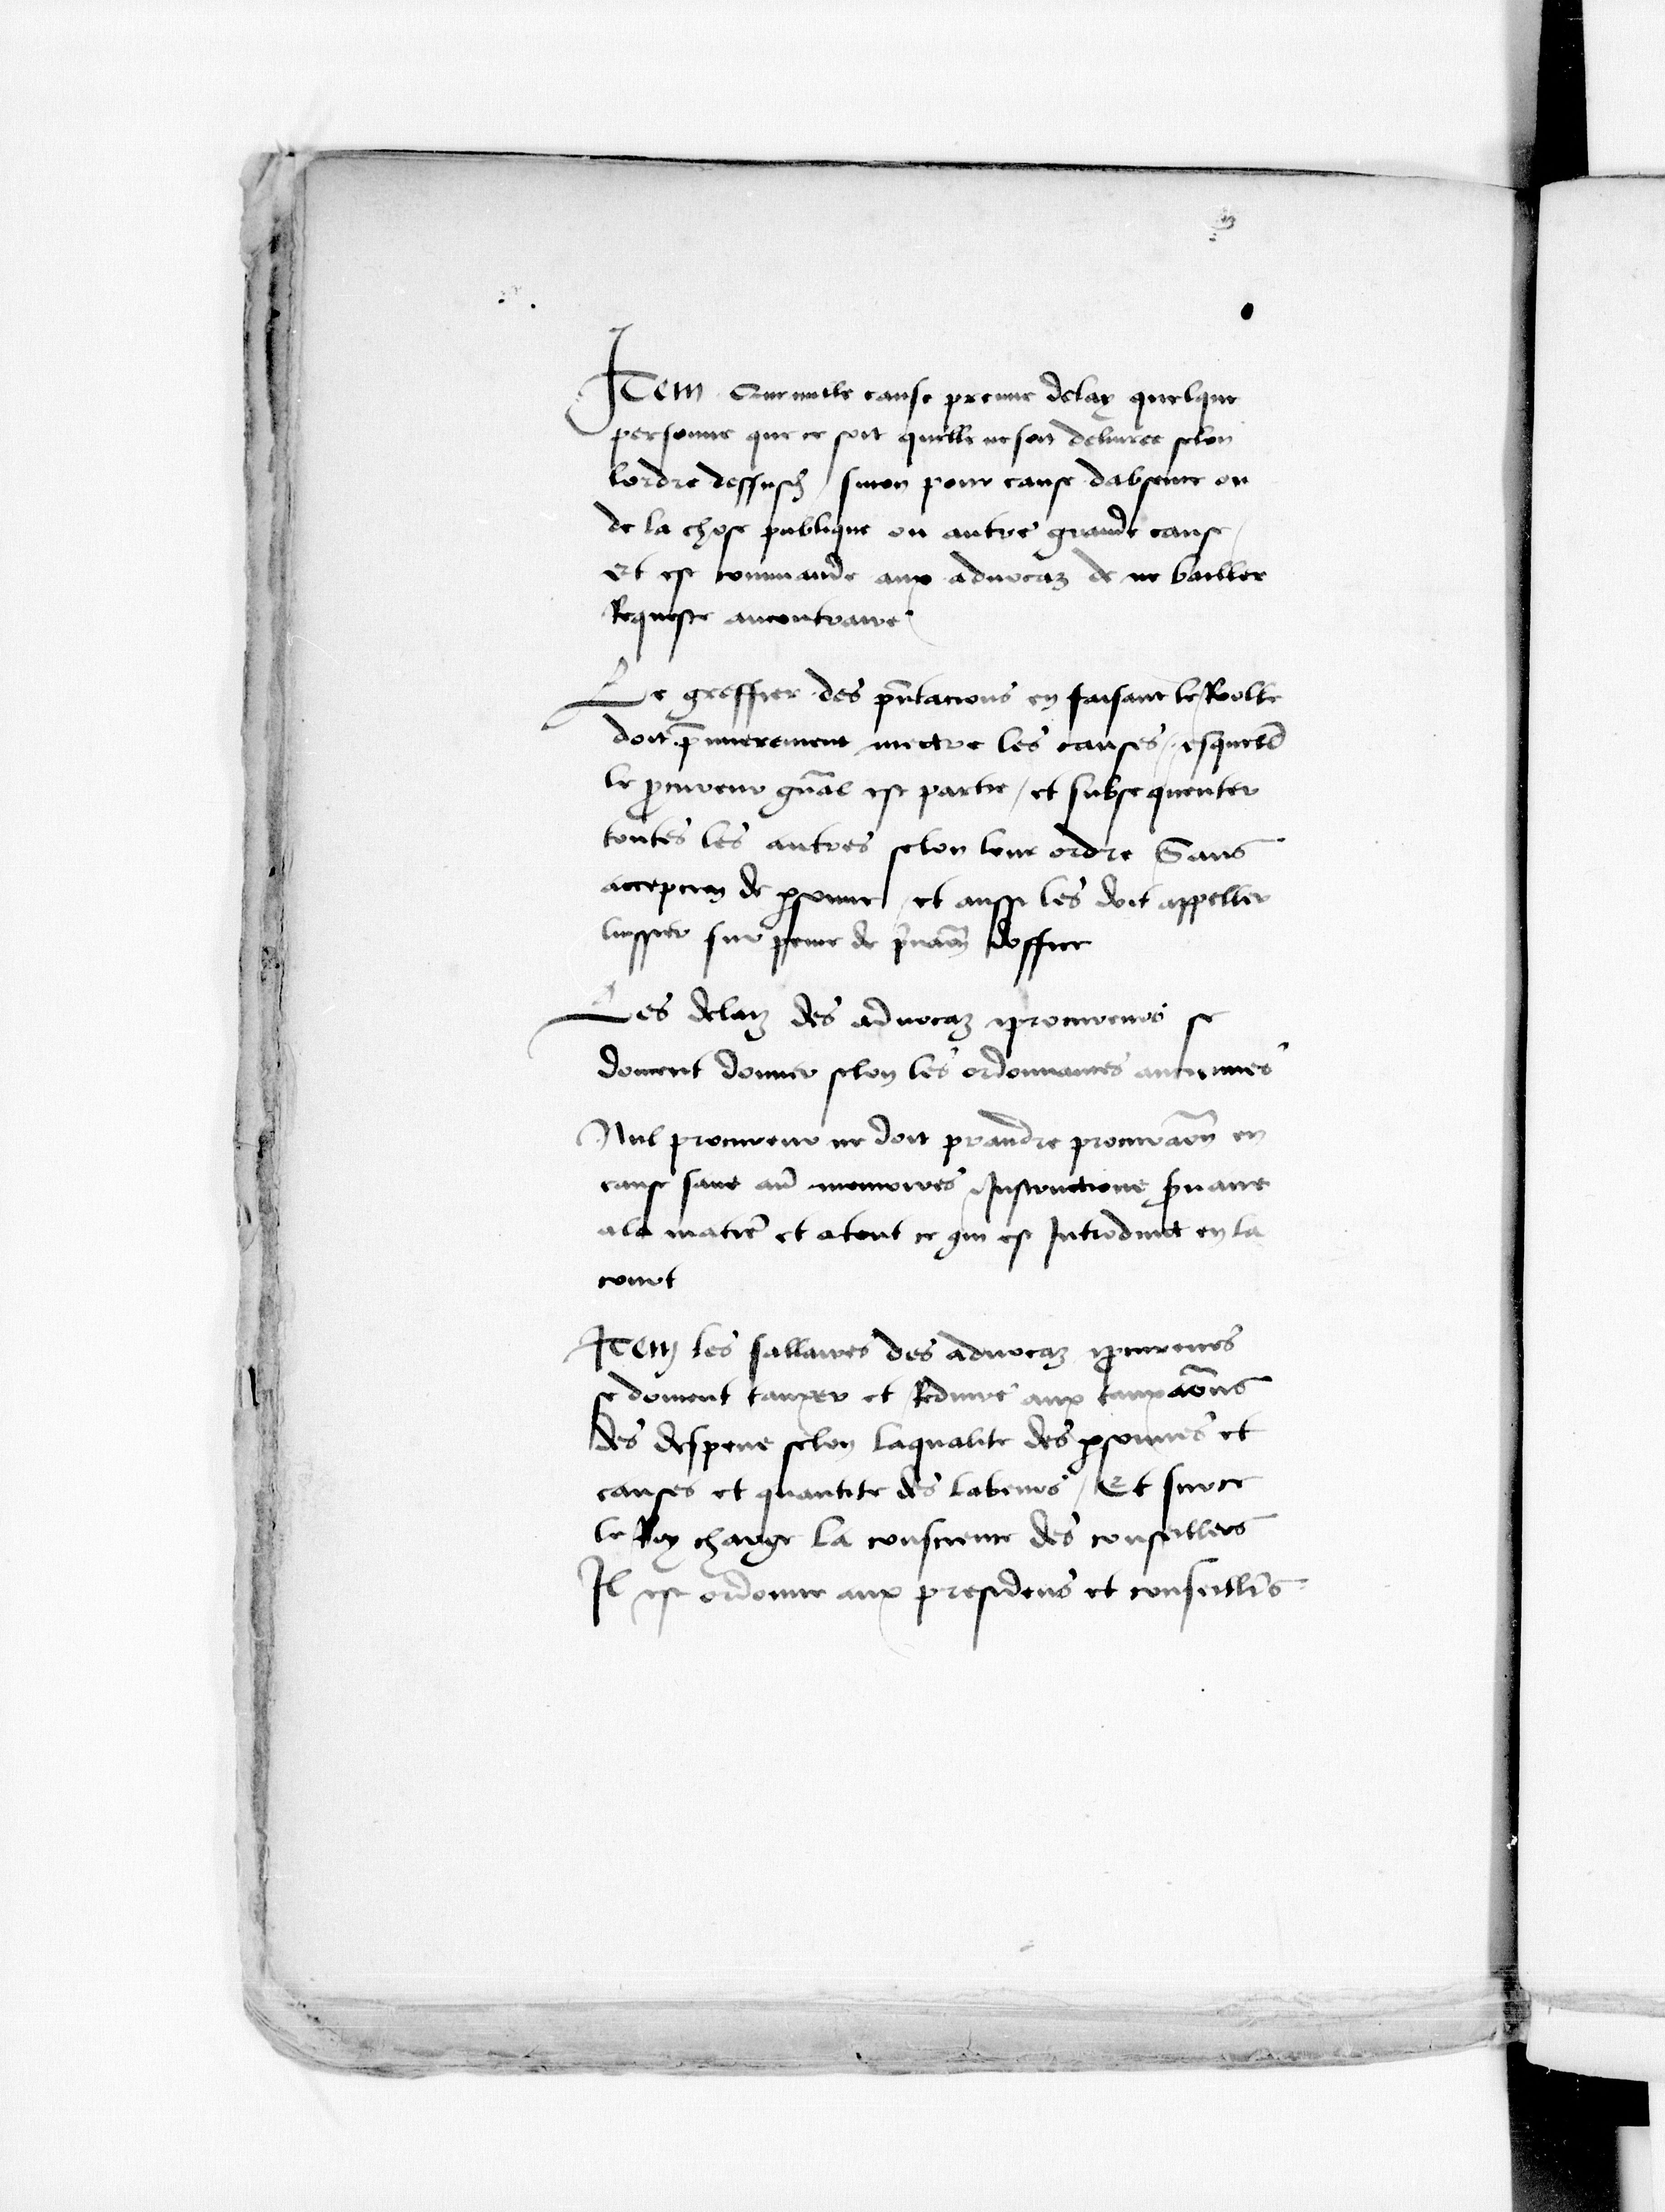 Item Que nulle cause preine delay quelque
personne que ce soit quelle ne soit delivree selon
lordre dessusd / sinon pour cause dabsence ou
de la chose publique ou autre grande cause /
Et est commande aux advocaz de ne bailler
Requeste aucontraire /
Le greffier des pñtacions en faisant le Rolle
doit p̃mierement mectre les causes / esquelz
le p̃cureur gñal est partie / et subsequenter
toutes les autres selon leur ordre Sans
accepcion de ꝑsonne / et aussi les doit appeller
luissier sur peine de p̃vacõn doffice
Les delaiz des advocaz ⁊ procureurs se
doivent donner selon les ordonnances anciennes
Nul procureur ne doit prandre procuracõn en
cause sans au memoires Instructions
ala matier̃ et atout ce qui est Introduict en la
court
Item les sallaires des advocaz ⁊ p̃cureurs
se doivent tauxer et Reduire aux tauxacõns
des despens selon laqualite des ꝑsonnes et
causes et quantite des labeurs / Et surce
le Roy charge la conscience des conseillers
Il est ordonne aux presidens et conseillers